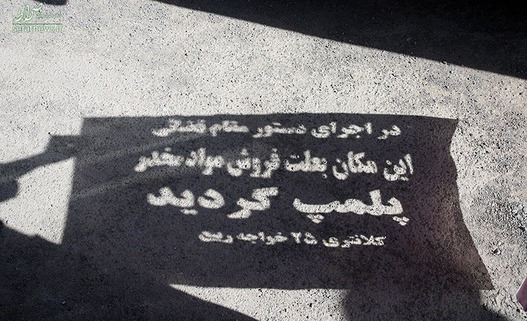 در اجرای دستور مقام قضائی
این مکان بعلت فروش مواد مخدر
پلمپ گردید
کلانتری ۲۵ خواجه ربیع